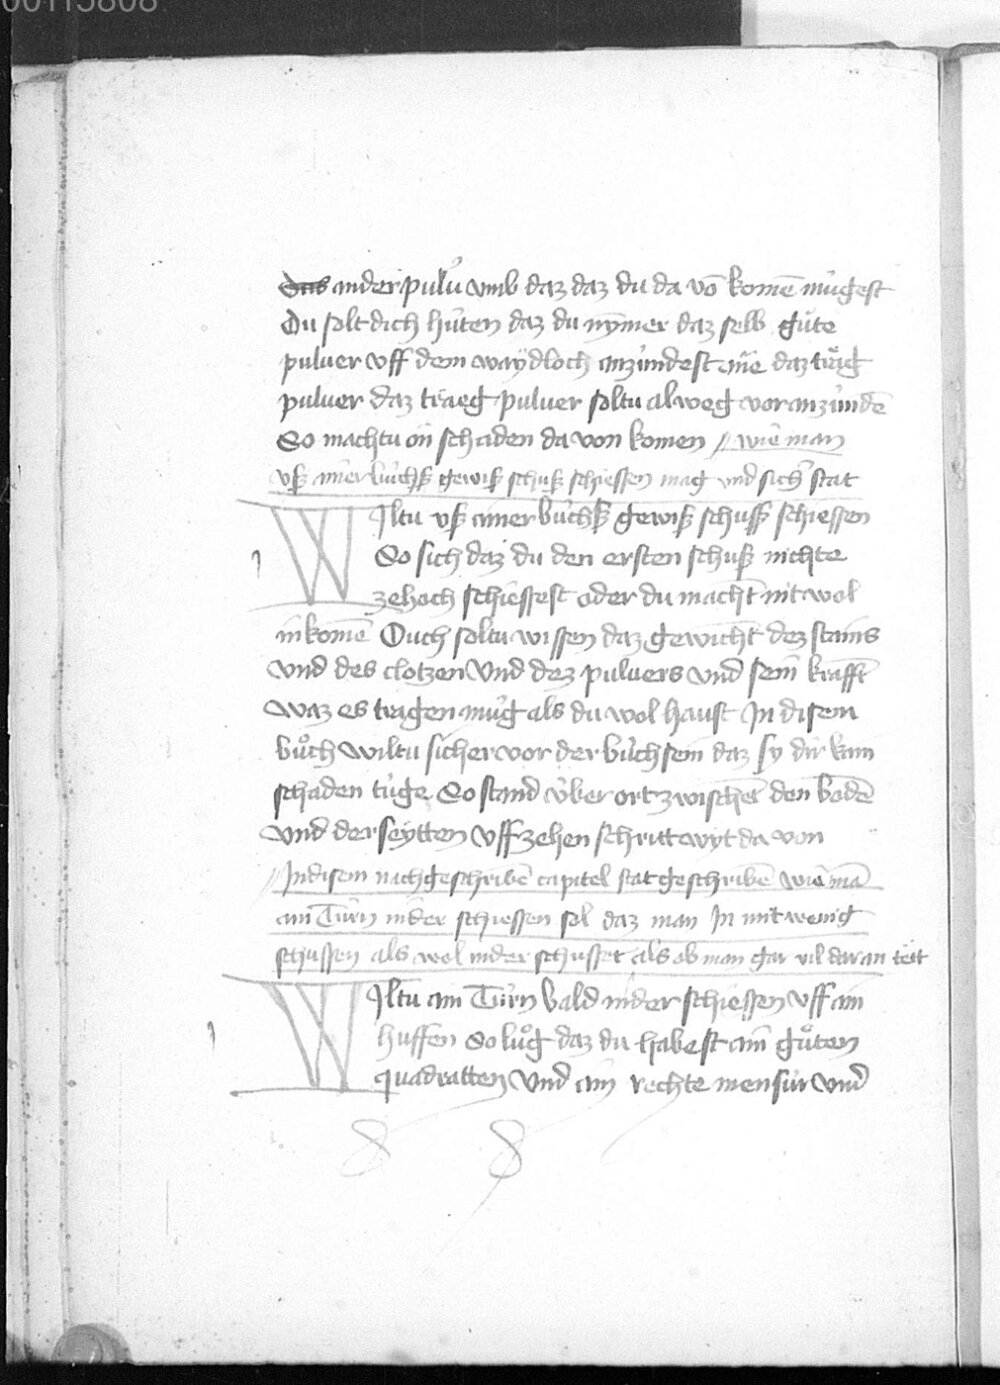 00115808
Das ander pulu̇ vmb daz daz du da vō komē mu̇gest
Du solt dich hu̇ten daz du nȳmer daz selb gůte
puluer vff dem waydloch anzu̇ndest mē daz träg
puluer daz traeg puluer soltu alweg vor anzu̇ndē
So machtu on schaden da von komen wie man
vß ainer bu̇chß gewiß schuß schiessen mag vnd sich stat
WIltu vß ainer bu̇chß gewiß schuß schiessen
So sich daz du den ersten schuß nichte
ze hoch schiessest oder du macht nit wol
inkomē Ouch soltu wissen daz gewicht dez stains
vnd des clotzen Vnd dez puluers vnd sein krafft
waz es tragen mu̇g als du wol haust In disem
bůch wiltu sicher vor der bu̇chsein daz sy dir kain
schaden tu̇ge So stand u̇ber ort zwischē den bodē
vnd der seytten Vff zehen schritt wyt da von
In disem nachgeschribē capitel stat geschribē wie mā
ain Turn nider schiessen sol daz man In mit wenig
schussen als wol nider schusset als ob man gar vil daran tett
WIltu ain Turn bald nider schiessen vff ain
huffen So lůg daz du habest ain gůten
quadratten Vnd ain rechte mensur vnd